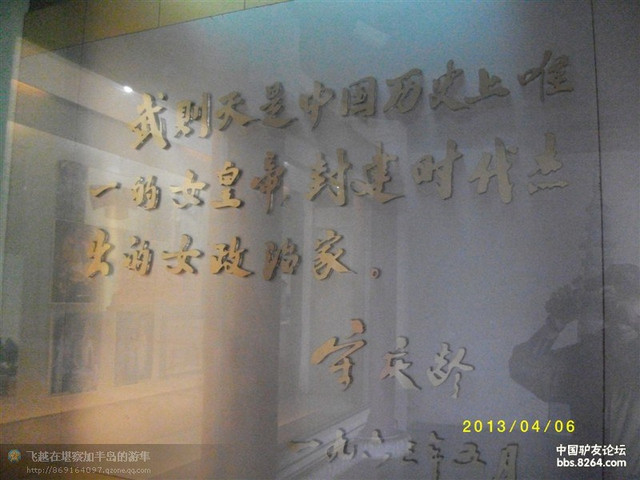 武则天是中国历史上唯
一的女皇帝,封建时代杰
出的女政治家。
宋庆龄
一九六三年五月
2013/04/06
飞越在堪察加半岛的游隼
http://869164097.qzone.qq.com
中国驴友论坛
bbs.8264.com